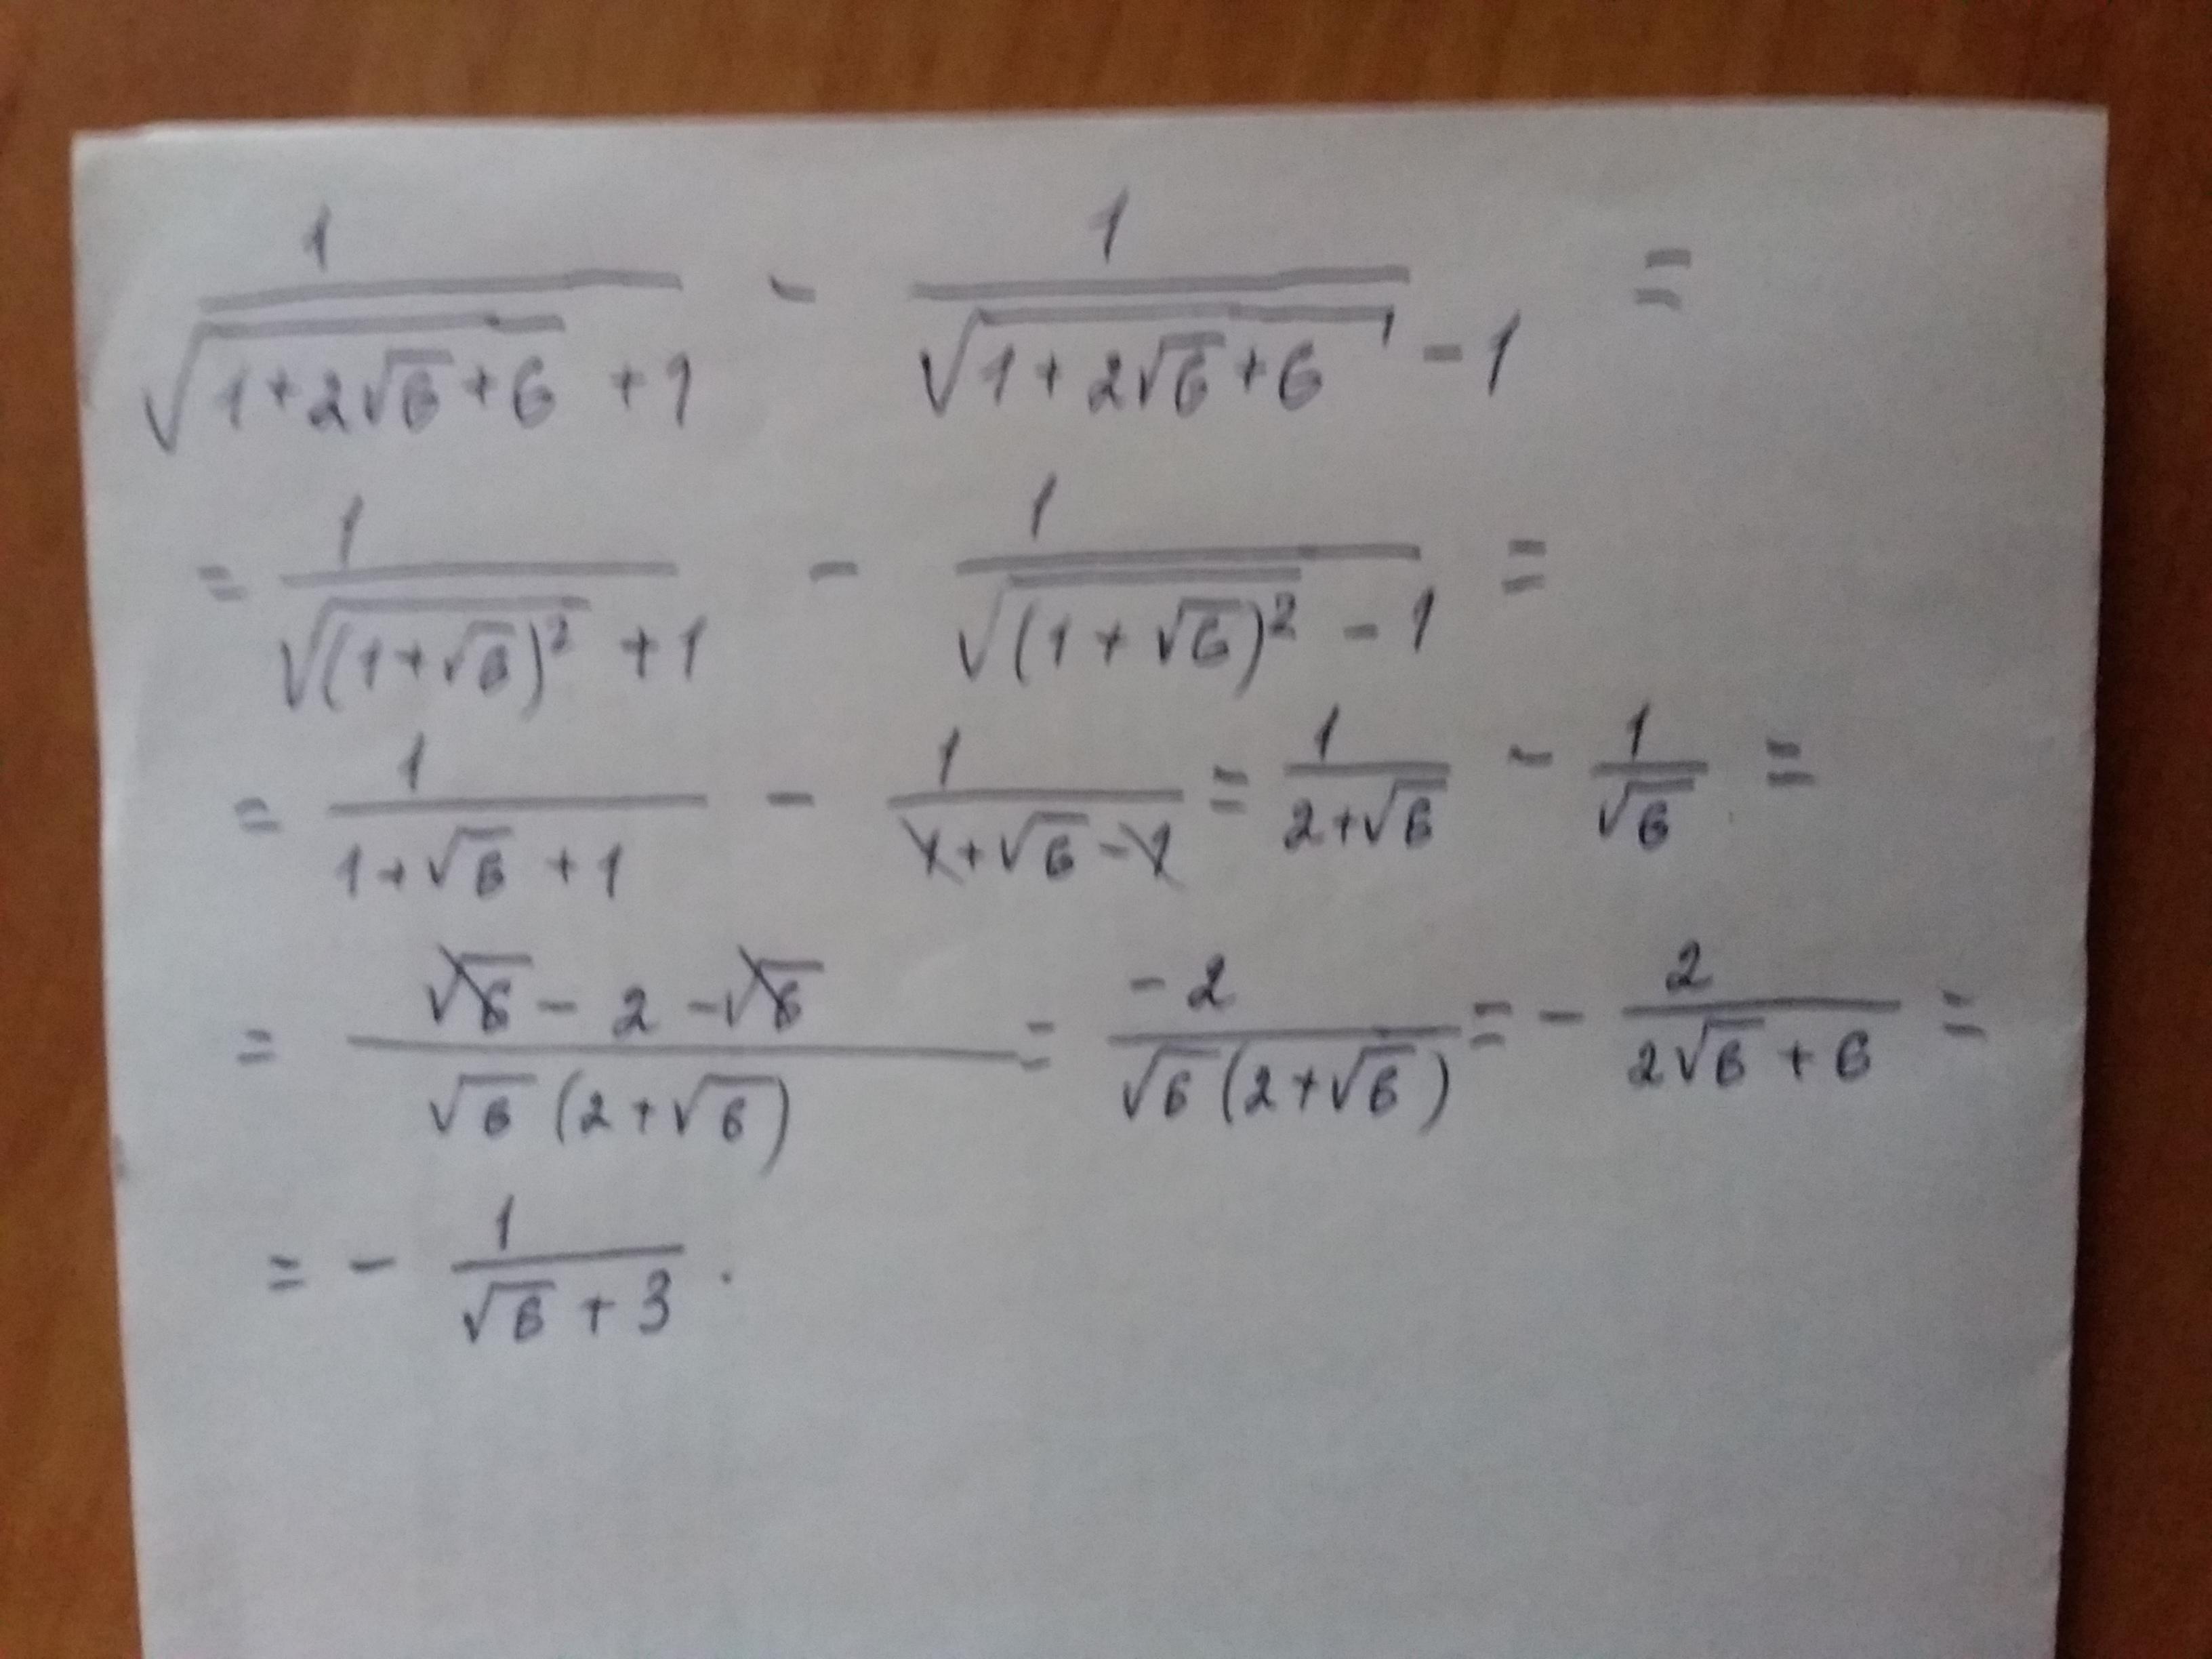 1/(√(1+2√6+6) +1) - 1/(√(1+2√6+6) -1) =
= 1/(√((1+√6)²) +1) - 1/(√((1+√6)²) -1) =
= 1/(1+√6+1) - 1/(1+√6-1) = 1/(2+√6) - 1/√6 =
= (√6 - 2 - √6)/(√6(2+√6)) = -2/(√6(2+√6)) = - 2/(2√6+6) =
= - 1/(√6+3).